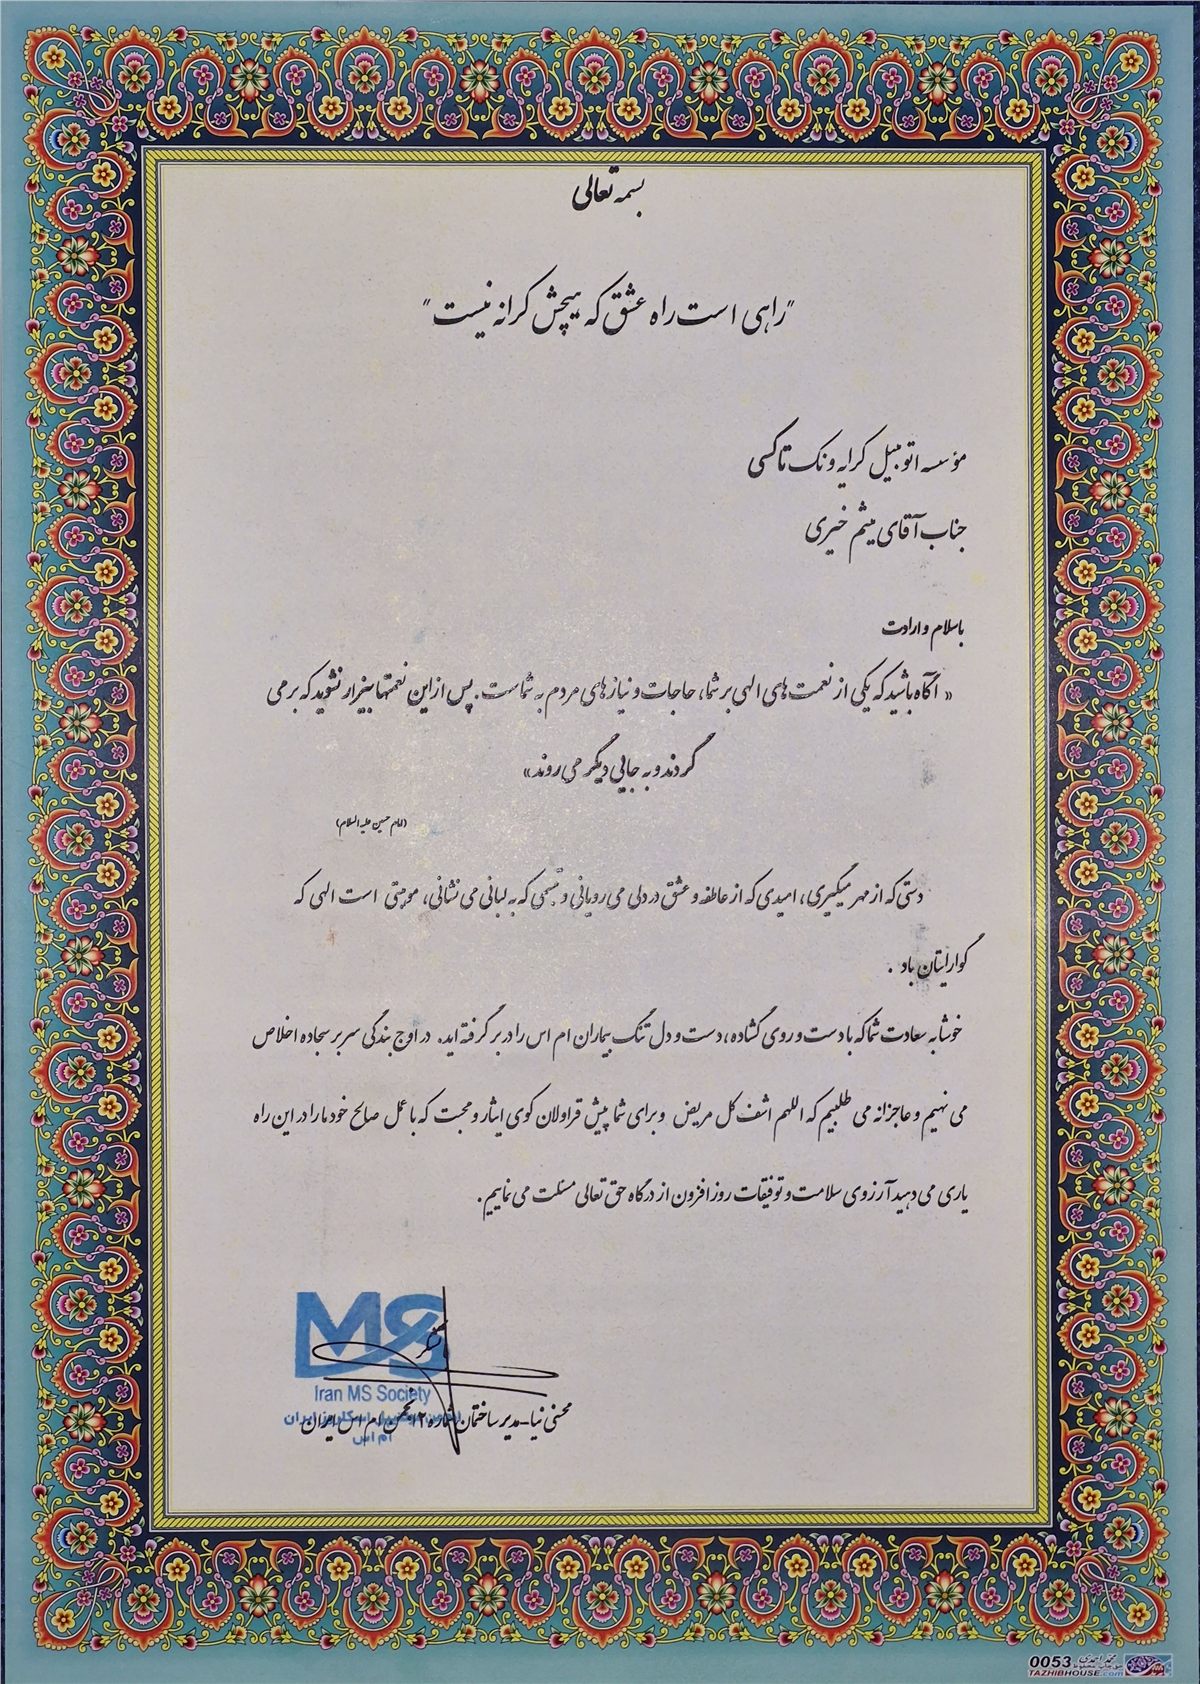 بسمه تعالی
"راهی است راه عشق که هیچش کرانه نیست"
مؤسسه اتومبیل کرایه ونک تاکسی
جناب آقای میثم خیری
باسلام و ارادت
« آگاه باشید که یکی از نعمت های الهی بر شما، حاجات و نیازهای مردم به شماست. پس از این نعمتها بیزار نشوید که بر می
گردند و به جایی دیگر می روند»
(امام حسین علیه السلام)
دستی که از مهر میگیری، امیدی که از عاطفه و عشق در دلی می رویانی و تبسمی که به لبانی می نشانی، موهبتی است الهی که
گوارایتان باد .
خوشا به سعادت شما که با دست و روی گشاده، دست و دل تنگ بیماران ام اس را در بر گرفته اید. در اوج بندگی سر بر سجاده اخلاص
می نهیم و عاجزانه می طلبیم که اللهم اشف کل مریض و برای شما پیش قراولان کوی ایثار و محبت که با عمل صالح خود ما را در این راه
یاری می دهید آرزوی سلامت و توفیقات روز افزون از درگاه حق تعالی مسئلت می نماییم.
MS
Iran MS Society
محسنی نیا-مدیر ساختمان شماره ۲ انجمن ام اس ایران
ام اس
0053
TAZHIBHOUSE.com